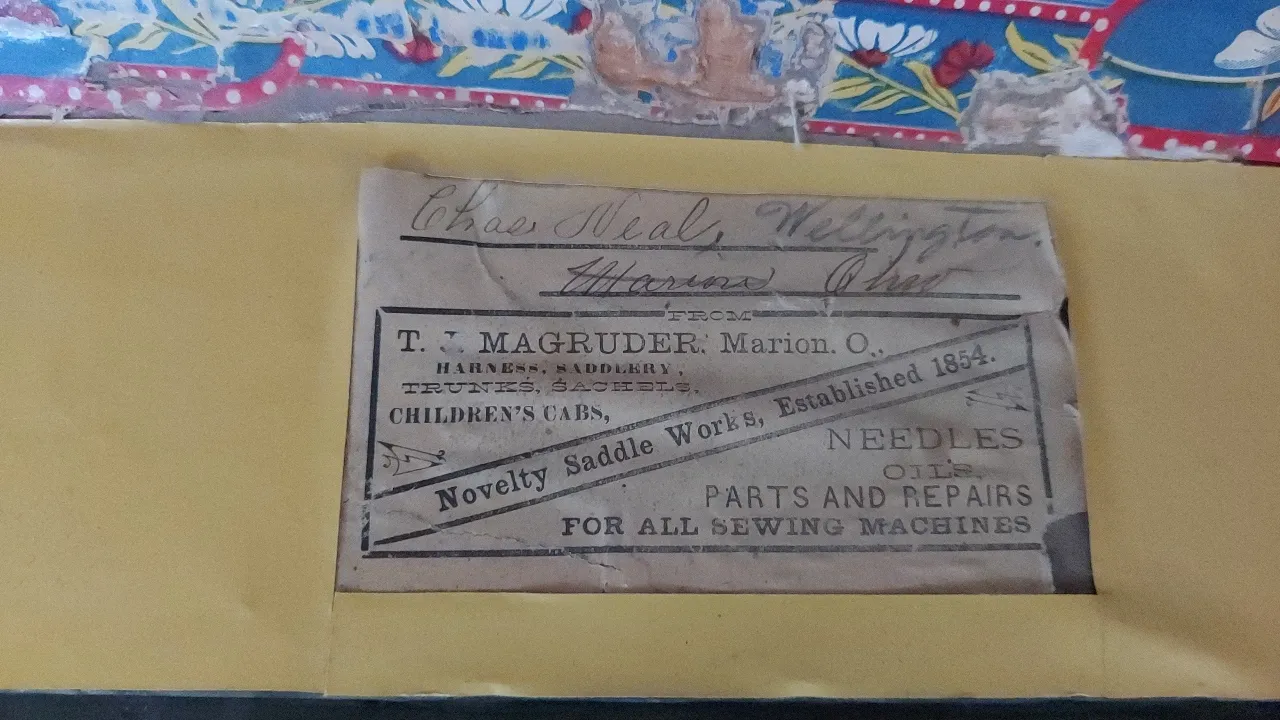 Chas. Neal, Wellington.
Marion Ohio
FROM
T. J. MAGRUDER, Marion. O.,
HARNESS, SADDLERY,
TRUNKS, SACHELS,
CHILDREN'S CABS,
Novelty Saddle Works, Established 1854.
NEEDLES
OILS,
PARTS AND REPAIRS
FOR ALL SEWING MACHINES